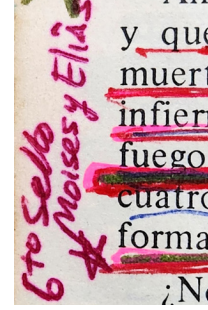 6to Sello
Moises y Elias
y que
muert
infierr
fuego
cuatro
forma
¿No